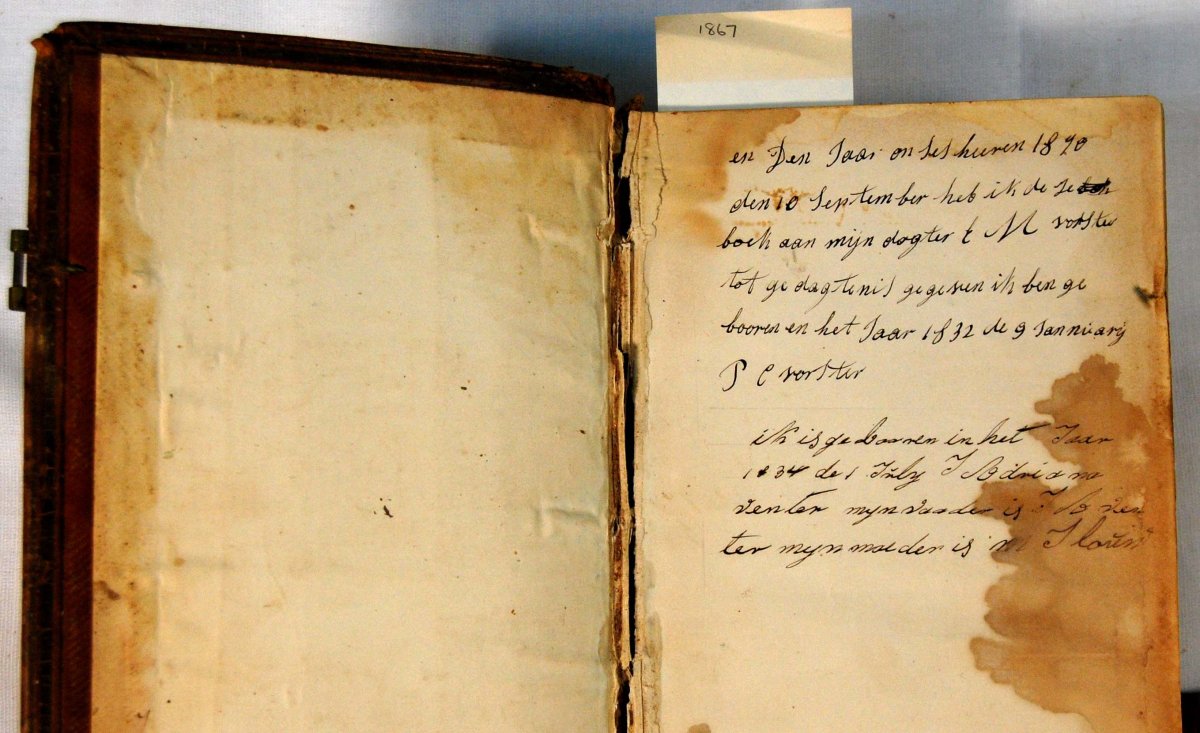 1867
en Den Jaar onses heeren 1890
den 10 September heb ik de se
boek aan mijn dogter t M vorster
tot ge dagtenis gegeven ik ben ge
booren en het Jaar 1832 de 9 Jannuarij
P C vorster
ik is ge booren in het Jaar
1834 de 1 July J Adriana
venter mijn vaader is J A ven
ter mijn moeder is M J